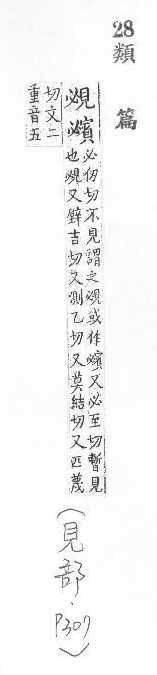 28
類篇
覕
必仞切不見謂之覕或作又必至切暫見
也覕又壁吉切又測乙切又莫結切又匹蔑
切文二
重音五
(見部·P307)